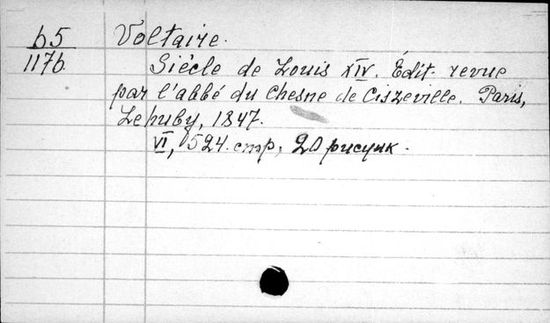 b5
117b
Voltaire.
Siècle de Louis XIV. Édit. revue
par l'abbé du Chesne de Ciszeville. Paris,
Lehuby, 1847.
VI, 524 стр, 20 рисунк.